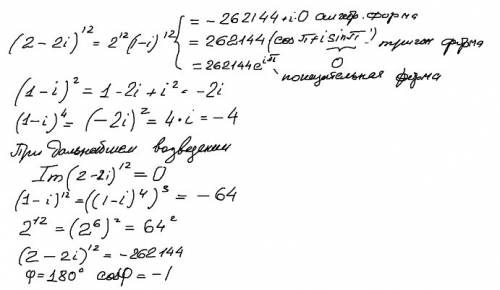 (2-2i)^12 = 2^12 (1-i)^12 { = -262144+i·0 алгебр. форма
= 262144 (cos π + i sin π) тригон форма
= 262144 e^iπ 0
показательная форма
(1-i)^2 = 1-2i+i^2 = -2i
(1-i)^4 = (-2i)^2 = 4·i = -4
При дальнейшем возведении
Im(2-2i)^12 = 0
(1-i)^12 = ((1-i)^4)^3 = -64
2^12 = (2^6)^2 = 64^2
(2-2i)^12 = -262144
φ=180° cosφ = -1